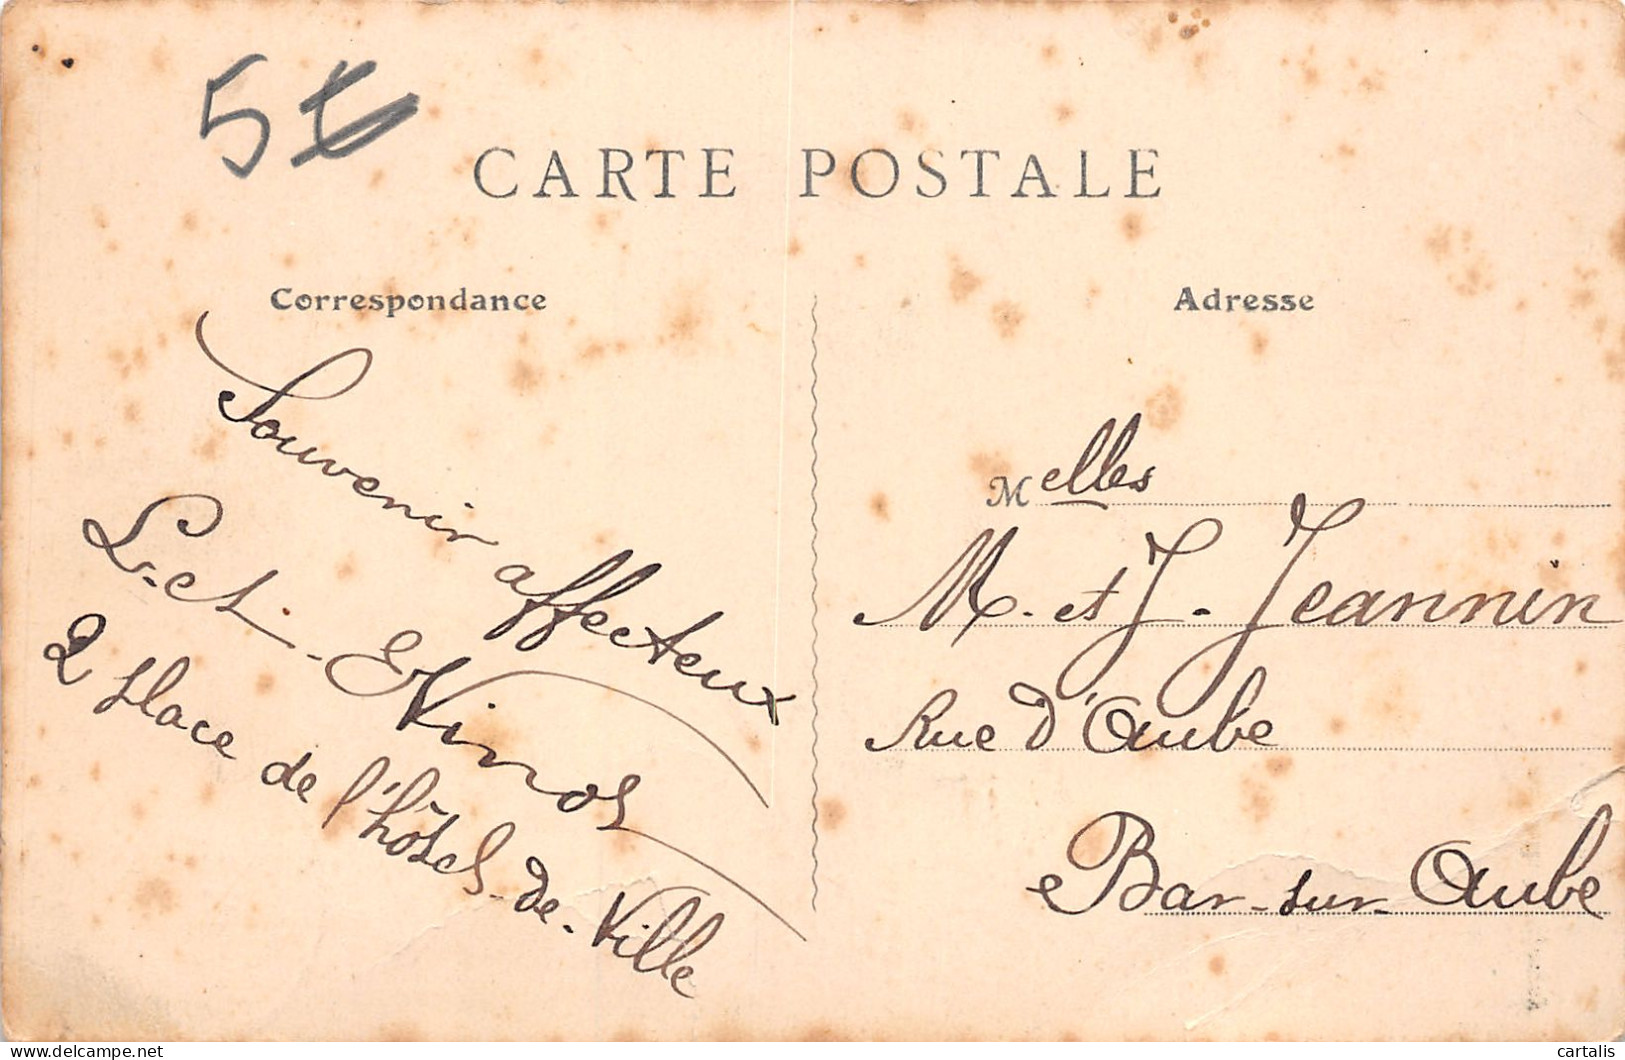 5
CARTE POSTALE
Correspondance
Souvenir affecteux
L. et. E Vinot
2 place de l'hôtel-de-Ville
Adresse
Melles
M. et J. Jeannin
Rue d'Aube
Bar-sur-Aube
delcampe.net
cartalis